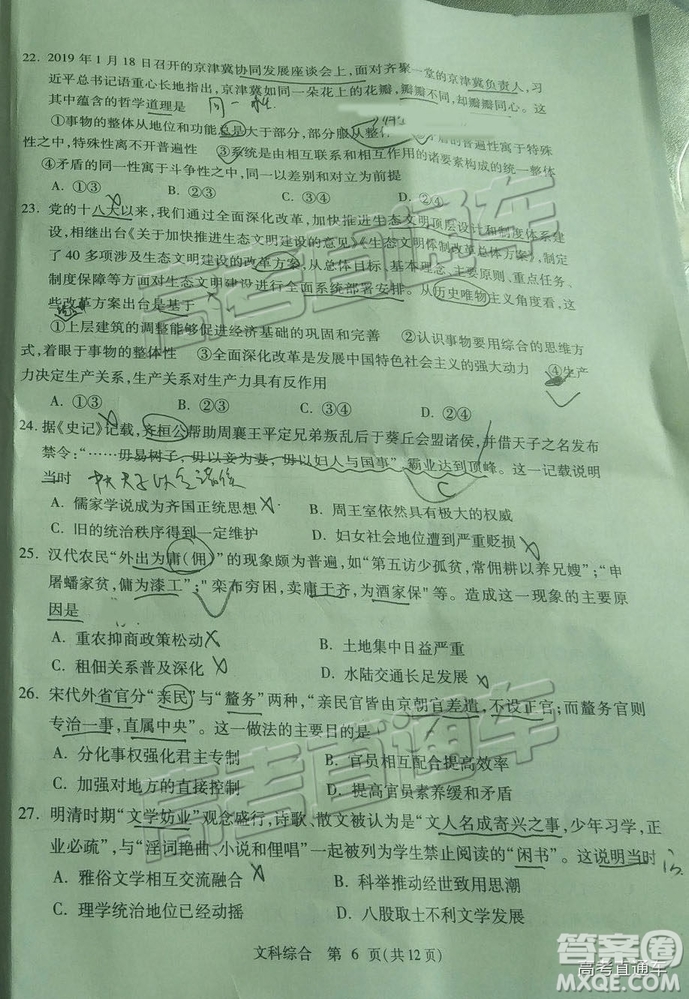 22. 2019 年 1 月 18 日召开的京津冀协同发展座谈会上,面对齐聚一堂的京津冀负责人,习
近平总书记语重心长地指出,京津冀如同一朵花上的花瓣,瓣瓣不同,却瓣瓣同心。这
其中蕴含的哲学道理是 同一性
①事物的整体从地位和功能总是大于部分,部分服从整体
性之中,特殊性离不开普遍性 ③系统是由相互联系和相互作用的诸要素构成的统一整
体 ④矛盾的同一性寓于斗争性之中,矛盾双方以差别和对立为前提
A. ①③ B. ②③ C. ①④ D. ②④
23. 党的十八大以来,我们通过全面深化改革,加快推进生态文明顶层设计和制度体系建
设,相继出台《关于加快推进生态文明建设的意见》《生态文明体制改革总体方案》,制定
了 40 多项涉及生态文明建设的改革方案,从总体目标、基本理念、主要原则、重点任务、
制度保障等方面对生态文明建设进行全面系统部署安排。从历史唯物主义角度看,这
些改革方案出台是基于
①上层建筑的调整能够促进经济基础的巩固和完善 ②认识事物要用综合的思维方
式,着眼于事物的整体性 ③全面深化改革是发展中国特色社会主义的强大动力 ④生产
力决定生产关系,生产关系对生产力具有反作用
A. ①③ B. ②③ C. ①④ D. ②④
24. 据《史记》记载,齐桓公帮助周襄王平定兄弟叛乱后于葵丘会盟诸侯,并借天子之名发布
禁令:“……毋易树子,毋以妾为妻,毋以妇人与国事”,霸业达到顶峰。这一记载说明
当时
C
A. 儒家学说成为齐国正统思想 B. 周王室依然具有极大的权威
C. 旧的统治秩序得到一定维护 D. 妇女社会地位遭到严重贬损
25. 汉代农民“外出为庸(佣)”的现象颇为普遍,如“第五访少孤贫,常佣耕以养兄嫂”;“申
屠蟠家贫,傭为漆工”;“栾布穷困,卖庸于齐,为酒家保”等。造成这一现象的主要原
因是
A. 重农抑商政策松动 B. 土地集中日益严重
C. 租佃关系普及深化 D. 水陆交通长足发展
26. 宋代外省官分“亲民”与“釐务”两种,“亲民官皆由京朝官差遣,不设正官;而釐务官则
专治一事,直属中央”。这一做法的主要目的是
A. 分化事权强化君主专制 B. 官员相互配合提高效率
C. 加强对地方的直接控制 D. 提高官员素养缓和矛盾
27. 明清时期“文学妨业”观念盛行,诗歌、散文被认为是“文人名成寄兴之事,少年习学,正
业必疏”,与“淫词艳曲、小说和俚唱”一起被列为学生禁止阅读的“闲书”。这说明当时
A. 雅俗文学相互交流融合 B. 科举推动经世致用思潮
C. 理学统治地位已经动摇 D. 八股取士不利文学发展
文科综合 第 6 页(共 12 页)
高考直通车
高考直通车
答案圈
高考直通车
MXQE.COM